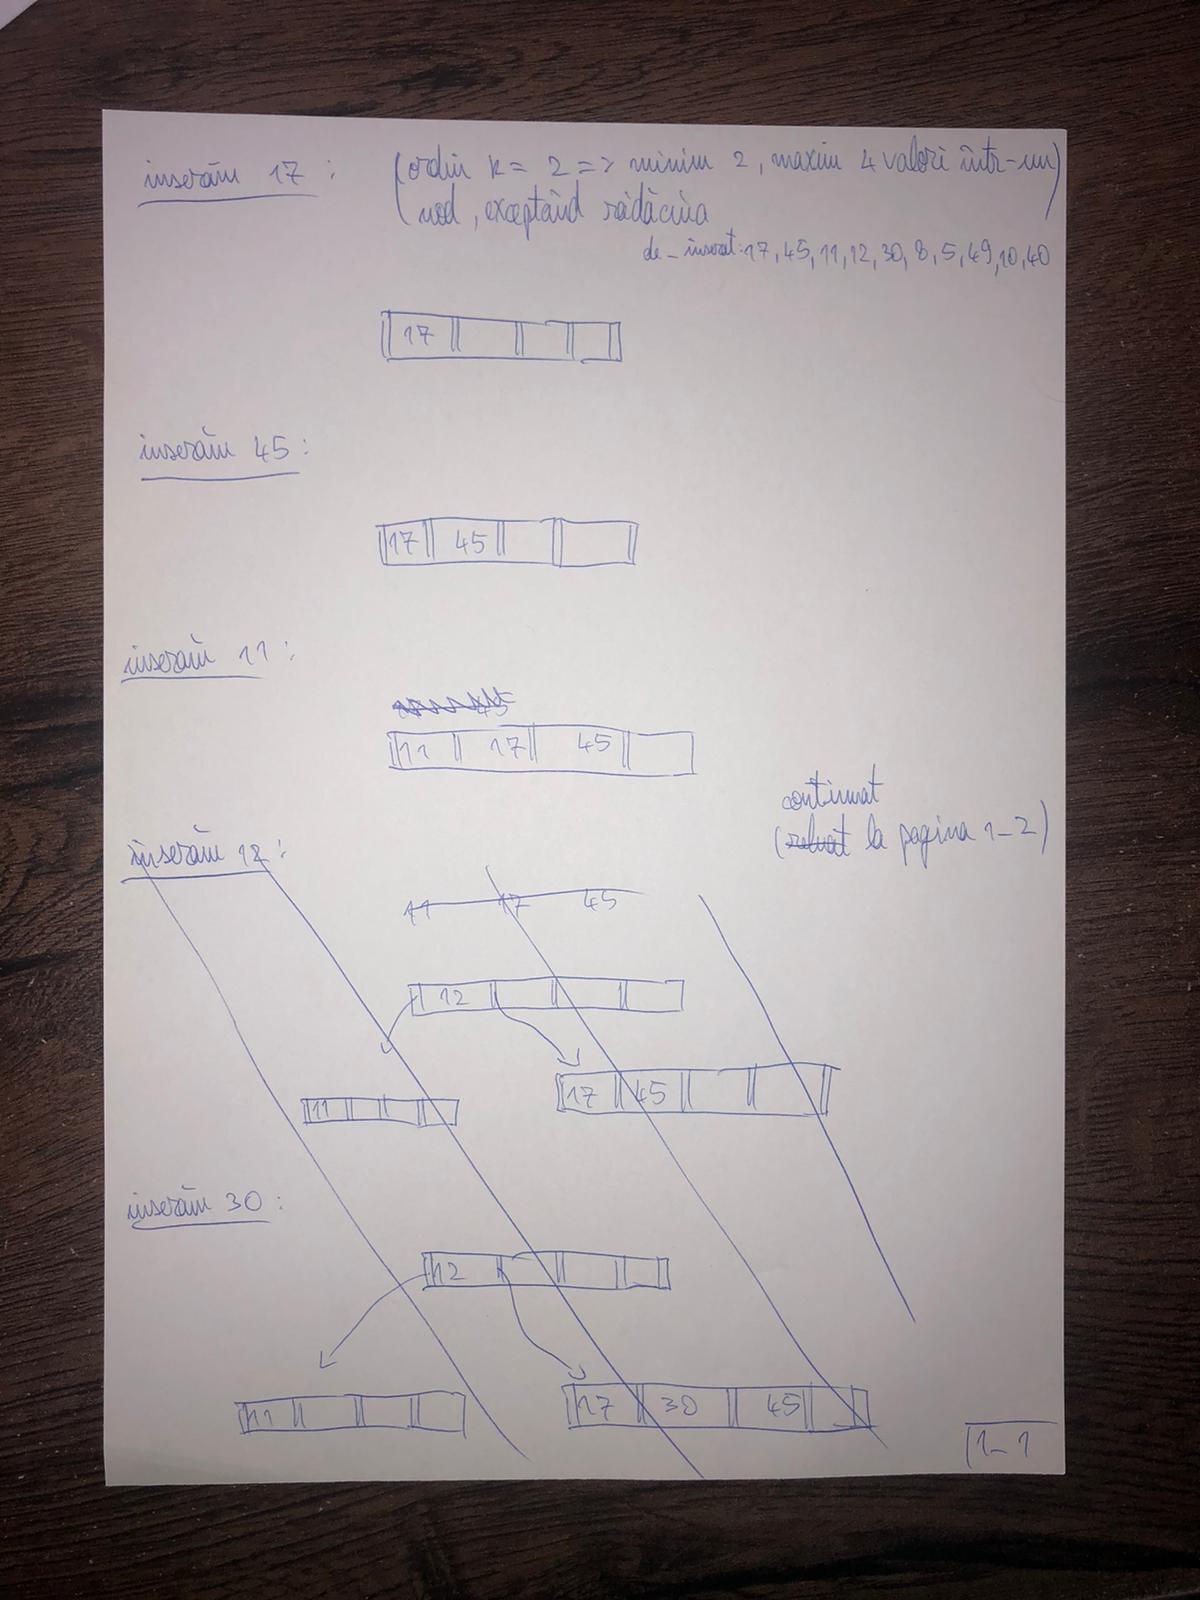 inserăm 17 :
(ordin k = 2 => minim 2, maxim 4 valori într-un
nod, exceptând rădăcina)
de_inserat: 17, 45, 11, 12, 30, 8, 5, 49, 10, 40
17
inserăm 45 :
17 45
inserăm 11 :
11 17 45
continuat
(reluat la pagina 1-2)
inserăm 12 :
11 17 45
12
11
17 45
inserăm 30 :
12
11
17 30 45
1-1